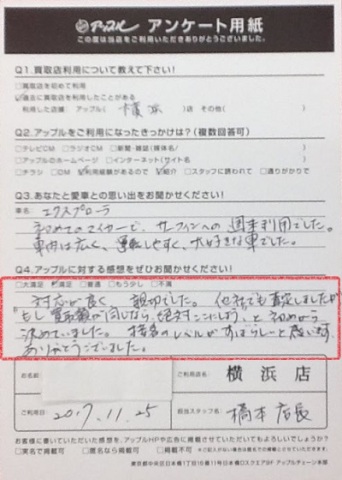 アップル アンケート用紙
この度は当店をご利用いただきありがとうございました。
Q1.買取店利用について教えて下さい!
□買取店を初めて利用
☑過去に買取店を利用したことがある
利用した店舗: アップル( 横浜 )店 その他( )
Q2.アップルをご利用になったきっかけは?(複数回答可)
□テレビCM □ラジオCM □新聞・雑誌(媒体名/ )
□アップルのホームページ □インターネット(サイト名/ )
□チラシ □DM ☑利用経験があるので ☑紹介 □スタッフに誘われて □通りがかりで
Q3.あなたと愛車との思い出をお聞かせください!
車名: エクスプローラ
初めてのマイカーで、サーフィンへの週末利用でした。
車内は広く、運転しやすく、大好きな車でした。
Q4.アップルに対する感想をぜひお聞かせください!
□大満足 ☑満足 □普通 □もう少し □不満
対応が良く、親切でした。他社でも査定しましたが
もし買取額が同じなら、絶対ここにしようと初めから
決めていました。接客のレベルがすばらしーと思います。
ありがとうございました。
お名前
ご利用店名: 横浜店
ご利用日: 2017.11.25
担当スタッフ名: 橋本店長
お客様に書いていただいた感想を、アップルHPや広告に掲載させていただいてもよろしいでしょうか?
□実名で掲載可 □匿名なら掲載可 □掲載不可
東京都中央区日本橋1丁目16番11号日本橋DスクエアBF アップルチェーン本部